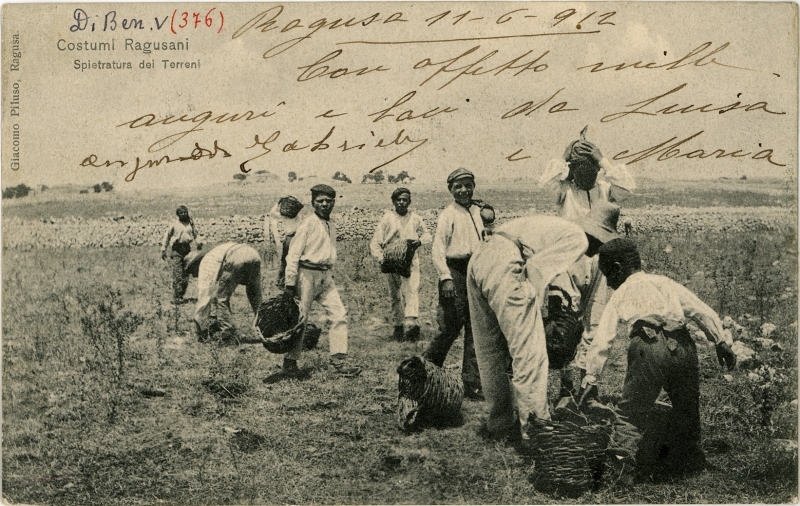 Di Ben. V (376)
Ragusa 11-6-912
Costumi Ragusani
Spietratura dei Terreni
Con affetto mille
auguri e baci da Luisa
Gabriely e Maria
Giacomo Piluso, Ragusa.